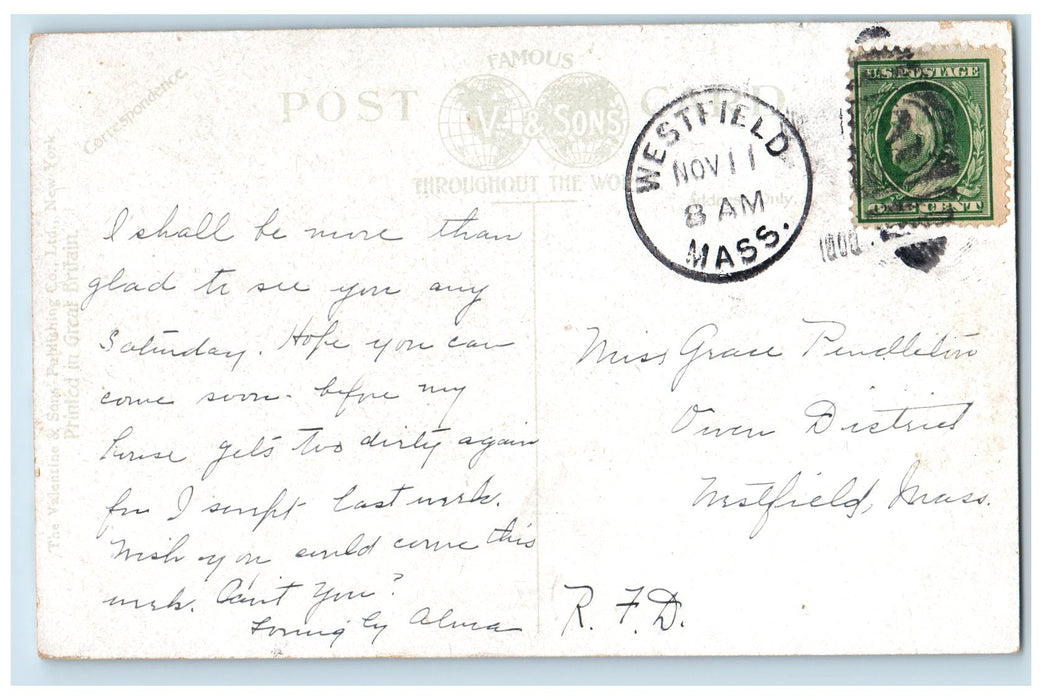 Correspondence.
FAMOUS
POST CARD
V. & SONS
THROUGHOUT THE WO
Only.
U.S. POSTAGE
ONE CENT
WESTFIELD
NOV 11
8 AM
MASS.
The Valentine & Sons' Publishing Co., Ltd., New York
Printed in Great Britain.
I shall be more than
glad to see you any
Saturday. Hope you can
come soon - before my
house gets too dirty again
for I swept last week.
Wish you could come this
week. Can't You?
Lovingly Alma
Miss Grace Pendleton
Owen District
Westfield, Mass.
R. F. D.